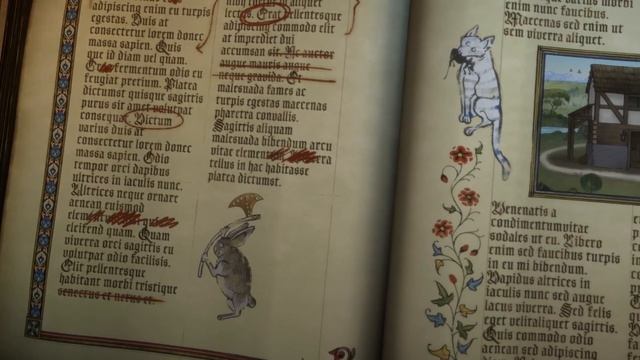 adipiscing commodo
turpis
egestas. Duis at
consectetur lorem donec
massa sapien. Quis
que id diam vel quam.
fermentum odio eu
feugiat pretium. Platea
dictumst quisque sagittis
purus sit amet volutpat
consequat. Dictum
varius duis at
consectetur lorem donec
massa sapien. Odio
tempor orci dapibus
ultrices in iaculis nunc.
Ultrices neque ornare
aenean euismod
eleifend quam. Quam
viverra orci sagittis eu
volutpat odio facilisis.
Elit pellentesque
habitant morbi tristique
senectus et netus et.
aliquet
lectus. Erat pellentesque
adipiscing commodo elit
at imperdiet dui
accumsan sit. Ac auctor
augue mauris augue
neque gravida. Et
malesuada fames ac
turpis egestas maecenas
pharetra convallis.
Sagittis aliquam
malesuada bibendum arcu
vitae
tellus in hac habitasse
platea dictumst.
nunc faucibus.
Maecenas sed enim ut
sem viverra aliquet.
Venenatis a
condimentumvitae
sodales ut eu. Libero
enim sed faucibus turpis
in eu mi bibendum.
Dapidus altrices in
iaculis nunc sed augue
lacus viverra. Sed felis
eget velitaliquet sagittis.
Quis commodo odio
aenean sed adipiscing